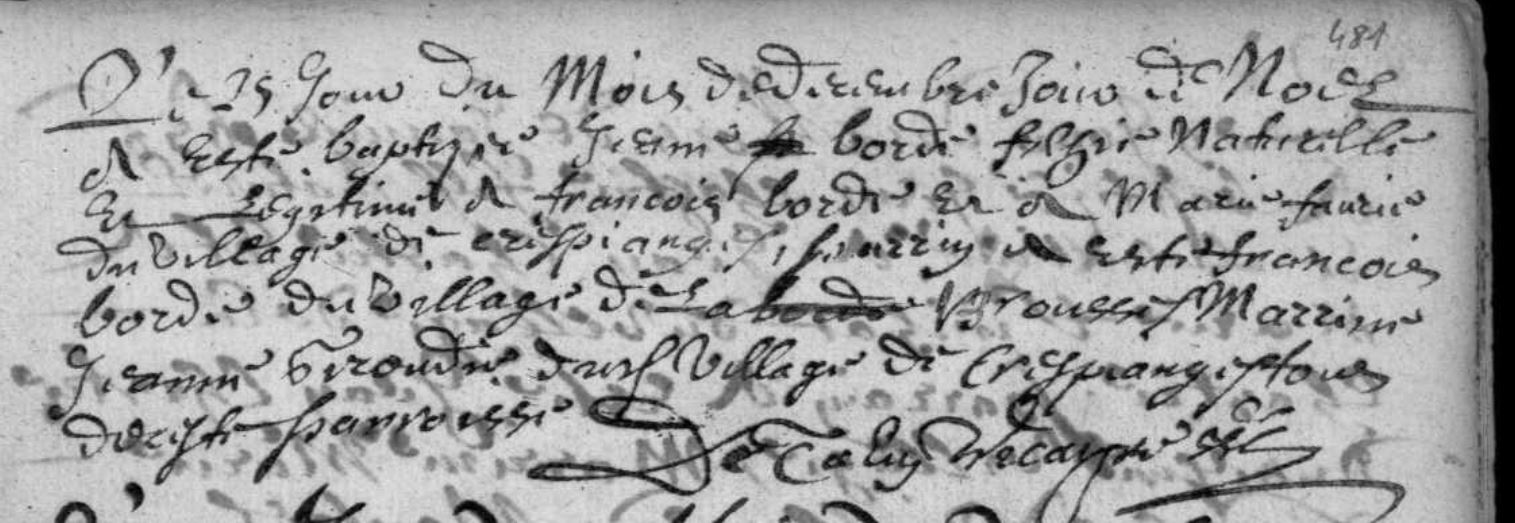 481
Le 25 Jour du Mois de decembre Jour de Noel
A este baptizée Jeanne borde fillie Naturelle
Et Legitime de francois borde et de Marie faurie
du Village de crespianges, parrin A este francois
borde du Village de Labrousse Marrine
Jeanne Giroudie dud Village de Crespianges tous
de ceste parroisse